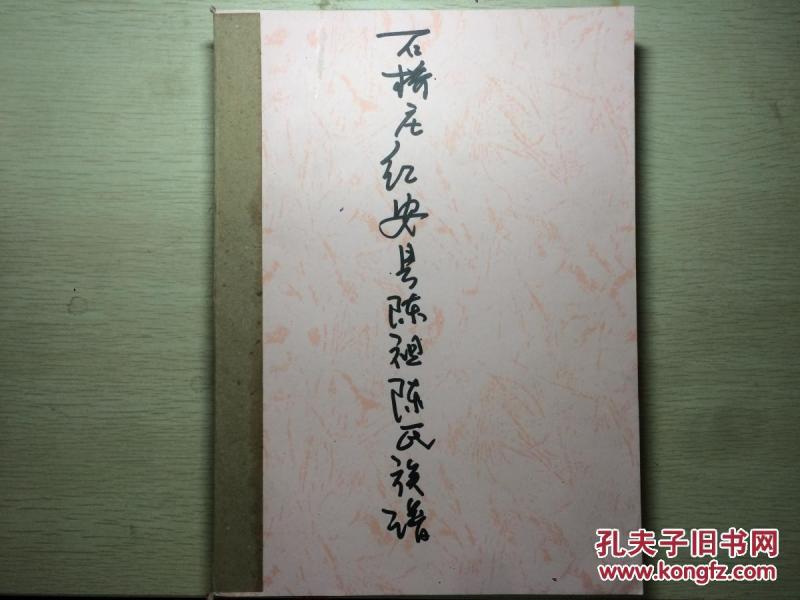 石桥庄红安县陈祖陈氏族谱
孔夫子旧书网
www.kongfz.com